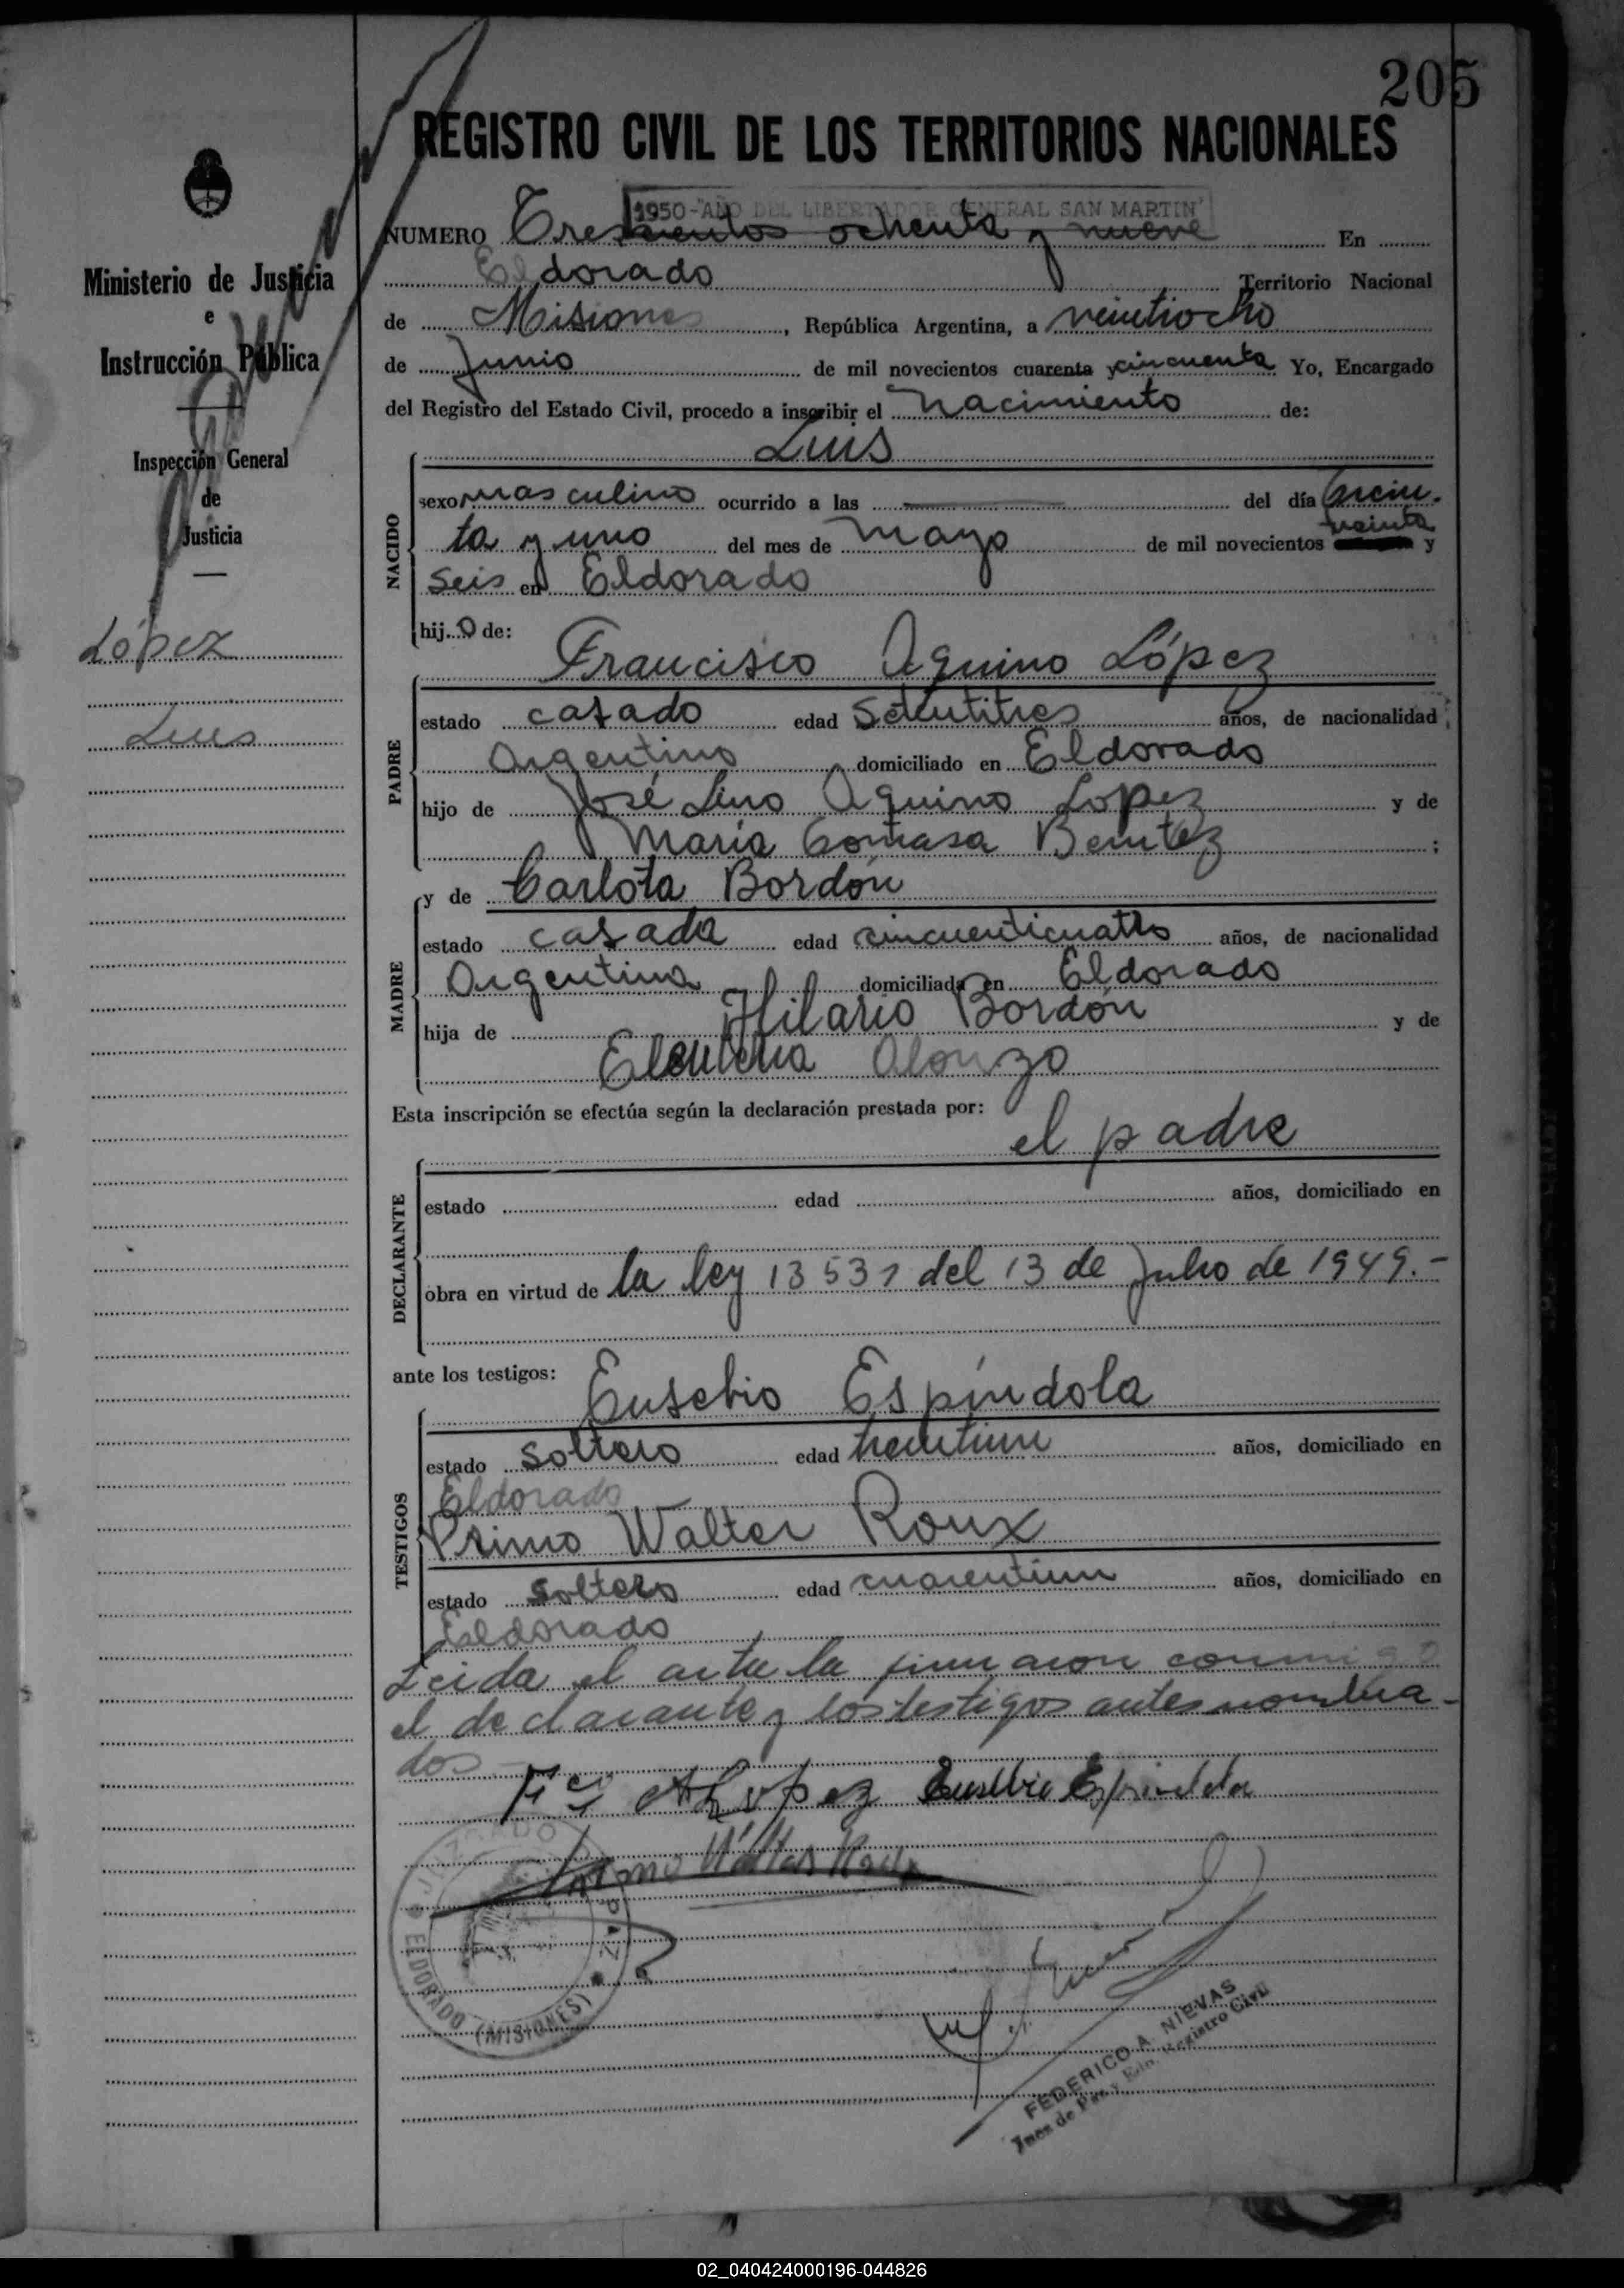 205
REGISTRO CIVIL DE LOS TERRITORIOS NACIONALES
1950-"AÑO DEL LIBERTADOR GENERAL SAN MARTIN"
NUMERO Trescientos ochenta y nueve En
Eldorado Territorio Nacional
de Misiones, República Argentina, a veintiocho
de Junio de mil novecientos cuarenta y cincuenta Yo, Encargado
del Registro del Estado Civil, procedo a inscribir el nacimiento de:
Luis
NACIDO
sexo masculino ocurrido a las del día trein-
ta y uno del mes de Mayo de mil novecientos treinta y
seis en Eldorado
hijo de:
Francisco Aquino López
PADRE
estado casado edad setentitres años, de nacionalidad
Argentino domiciliado en Eldorado
hijo de José Lino Aquino Lopez y de
María Tomasa Benitez ;
y de Carlota Bordón
MADRE
estado casada edad cincuenticuatro años, de nacionalidad
Argentina domiciliada en Eldorado
hija de Hilario Bordón y de
Eleuteria Alonzo
Esta inscripción se efectúa según la declaración prestada por:
el padre
DECLARANTE
estado edad años, domiciliado en
obra en virtud de la ley 13531 del 13 de Julio de 1949.-
ante los testigos:
Eusebio Espíndola
TESTIGOS
estado soltero edad treintiun años, domiciliado en
Eldorado
Primo Walter Roux
estado soltero edad cuarentiun años, domiciliado en
Eldorado
Leida el acta la firmaron conmigo
el declarante y los testigos antes nombra-
dos
Fco A Lopez Eusebio Espindola
Primo Walter Roux
JUZGADO DE PAZ
ELDORADO (MISIONES)
FEDERICO A. NIEVAS
Juez de Paz y Edo. Registro Civil
Ministerio de Justicia
e
Instrucción Pública
Inspección General
de
Justicia
López
Luis
02_040424000196-044826